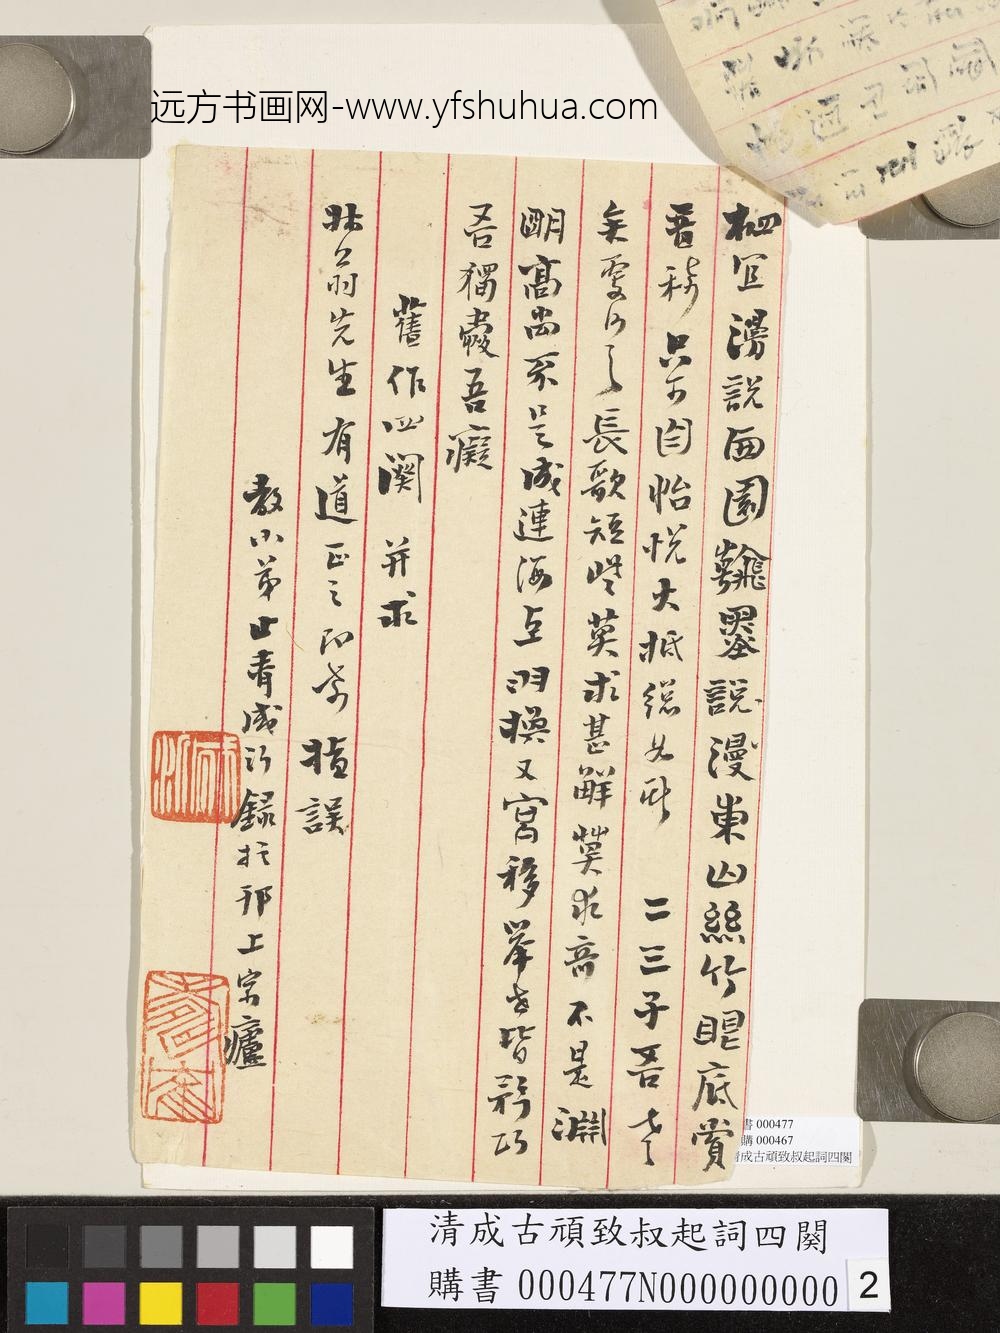 远方书画网-www.yfshuhua.com
栖宜漫說西園翰墨說漫東山絲竹眼底賞
音稀只可自怡悅大抵總如斯 二三子吾老
矣長歌短些莫求甚解莫求高不是淵
明高尚不是成連海上羽換又宮移舉世皆矜巧
吾獨裦吾癡
舊作四闋并求
翁先生有道正之即希指誤
教小弟成沂錄於邗上
書 000477
購 000467
清成古頑致叔起詞四闋
清成古頑致叔起詞四闋
購書 000477N000000000
2